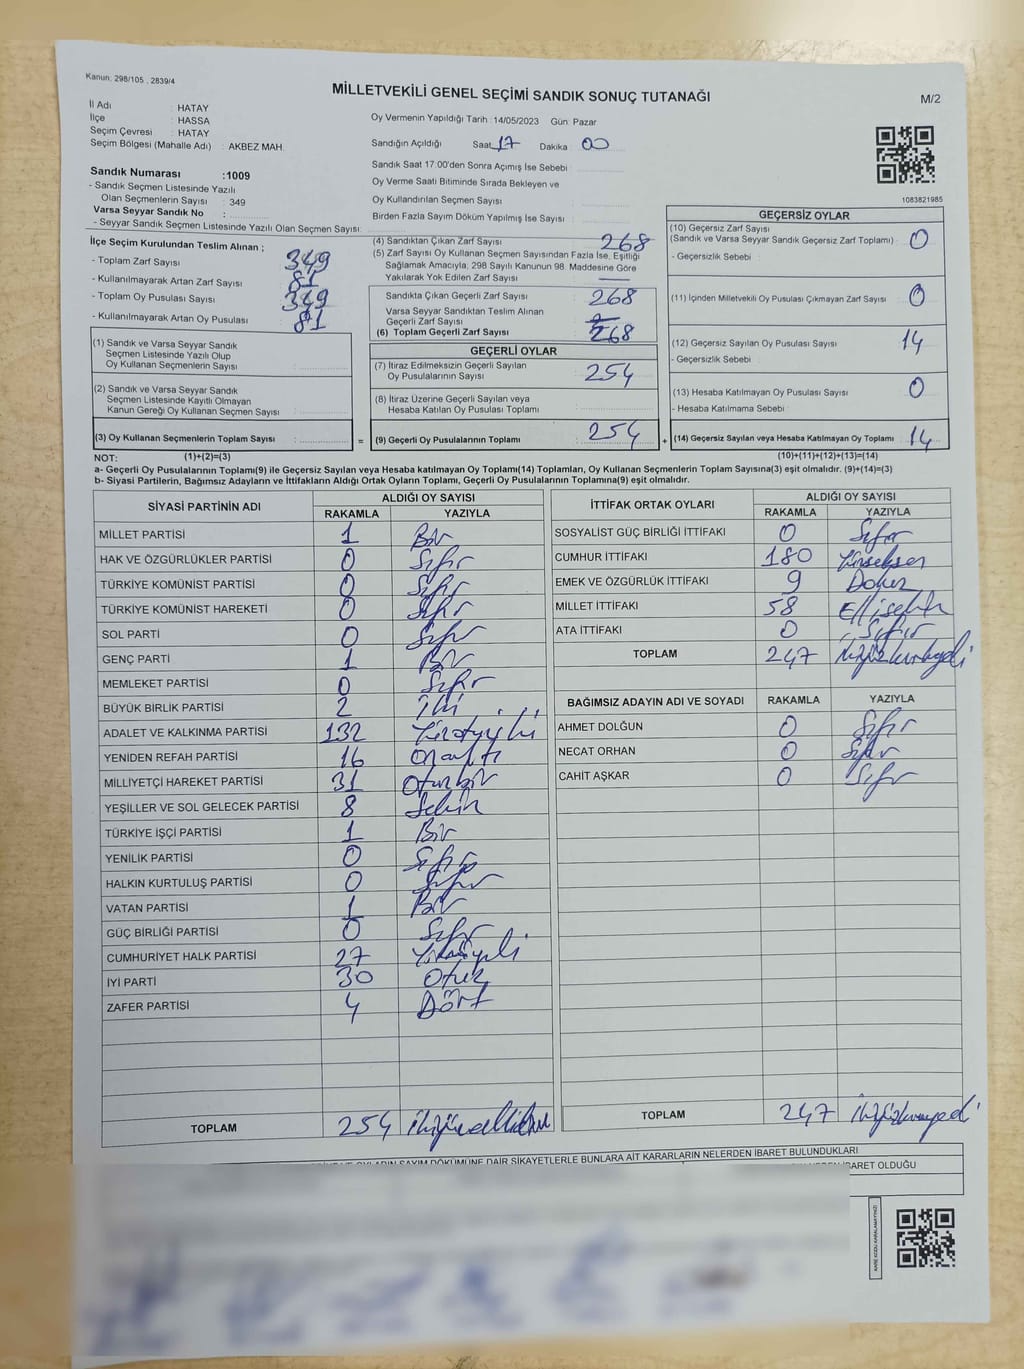 Kanun: 298/105 , 2839/4
MİLLETVEKİLİ GENEL SEÇİMİ SANDIK SONUÇ TUTANAĞI
M/2
İl Adı : HATAY
İlçe : HASSA
Seçim Çevresi : HATAY
Seçim Bölgesi (Mahalle Adı) : AKBEZ MAH.
Oy Vermenin Yapıldığı Tarih :14/05/2023 Gün: Pazar
Sandığın Açıldığı Saat 17 Dakika : 00
Sandık Saat 17.00'den Sonra Açımış İse Sebebi :
Oy Verme Saati Bitiminde Sırada Bekleyen ve
Oy Kullandırılan Seçmen Sayısı :
Birden Fazla Sayım Döküm Yapılmış İse Sayısı :
1083821985
Sandık Numarası :1009
- Sandık Seçmen Listesinde Yazılı
Olan Seçmenlerin Sayısı : 349
Varsa Seyyar Sandık No :
- Seyyar Sandık Seçmen Listesinde Yazılı Olan Seçmen Sayısı:
İlçe Seçim Kurulundan Teslim Alınan ;
- Toplam Zarf Sayısı : 349
- Kullanılmayarak Artan Zarf Sayısı : 81
- Toplam Oy Pusulası Sayısı : 349
- Kullanılmayarak Artan Oy Pusulası : 81
(1) Sandık ve Varsa Seyyar Sandık
Seçmen Listesinde Yazılı Olup
Oy Kullanan Seçmenlerin Sayısı :
(2) Sandık ve Varsa Seyyar Sandık
Seçmen Listesinde Kayıtlı Olmayan
Kanun Gereği Oy Kullanan Seçmen Sayısı :
(3) Oy Kullanan Seçmenlerin Toplam Sayısı : =
(4) Sandıktan Çıkan Zarf Sayısı 268
(5) Zarf Sayısı Oy Kullanan Seçmen Sayısından Fazla İse, Eşitliği
Sağlamak Amacıyla, 298 Sayılı Kanunun 98. Maddesine Göre
Yakılarak Yok Edilen Zarf Sayısı :
Sandıkta Çıkan Geçerli Zarf Sayısı : 268
Varsa Seyyar Sandıktan Teslim Alınan
Geçerli Zarf Sayısı :
(6) Toplam Geçerli Zarf Sayısı : 268
GEÇERLİ OYLAR
(7) İtiraz Edilmeksizin Geçerli Sayılan
Oy Pusulalarının Sayısı : 254
(8) İtiraz Üzerine Geçerli Sayılan veya
Hesaba Katılan Oy Pusulası Toplamı :
(9) Geçerli Oy Pusulalarının Toplamı : 254 +
GEÇERSİZ OYLAR
(10) Geçersiz Zarf Sayısı
(Sandık ve Varsa Seyyar Sandık Geçersiz Zarf Toplamı) : 0
- Geçersizlik Sebebi :
(11) İçinden Milletvekili Oy Pusulası Çıkmayan Zarf Sayısı : 0
(12) Geçersiz Sayılan Oy Pusulası Sayısı : 14
- Geçersizlik Sebebi :
(13) Hesaba Katılmayan Oy Pusulası Sayısı : 0
- Hesaba Katılmama Sebebi :
(14) Geçersiz Sayılan veya Hesaba Katılmayan Oy Toplamı : 14
NOT: (1)+(2)=(3)
(10)+(11)+(12)+(13)=(14)
a- Geçerli Oy Pusulalarının Toplamı(9) ile Geçersiz Sayılan veya Hesaba katılmayan Oy Toplamı(14) Toplamları, Oy Kullanan Seçmenlerin Toplam Sayısına(3) eşit olmalıdır. (9)+(14)=(3)
b- Siyasi Partilerin, Bağımsız Adayların ve İttifakların Aldığı Ortak Oyların Toplamı, Geçerli Oy Pusulalarının Toplamına(9) eşit olmalıdır.
SİYASİ PARTİNİN ADI ALDIĞI OY SAYISI
RAKAMLA YAZIYLA
MİLLET PARTİSİ 1 Bir
HAK VE ÖZGÜRLÜKLER PARTİSİ 0 Sıfır
TÜRKİYE KOMÜNİST PARTİSİ 0 Sıfır
TÜRKİYE KOMÜNİST HAREKETİ 0 Sıfır
SOL PARTİ 0 Sıfır
GENÇ PARTİ 1 Bir
MEMLEKET PARTİSİ 0 Sıfır
BÜYÜK BİRLİK PARTİSİ 2 İki
ADALET VE KALKINMA PARTİSİ 132 Yüzotuziki
YENİDEN REFAH PARTİSİ 16 Onaltı
MİLLİYETÇİ HAREKET PARTİSİ 31 Otuzbir
YEŞİLLER VE SOL GELECEK PARTİSİ 8 Sekiz
TÜRKİYE İŞÇİ PARTİSİ 1 Bir
YENİLİK PARTİSİ 0 Sıfır
HALKIN KURTULUŞ PARTİSİ 0 Sıfır
VATAN PARTİSİ 1 Bir
GÜÇ BİRLİĞİ PARTİSİ 0 Sıfır
CUMHURİYET HALK PARTİSİ 27 Yirmiyedi
İYİ PARTİ 30 Otuz
ZAFER PARTİSİ 4 Dört
TOPLAM 254 İkiyüzellidört
İTTİFAK ORTAK OYLARI ALDIĞI OY SAYISI
RAKAMLA YAZIYLA
SOSYALİST GÜÇ BİRLİĞİ İTTİFAKI 0 Sıfır
CUMHUR İTTİFAKI 180 Yüzseksen
EMEK VE ÖZGÜRLÜK İTTİFAKI 9 Dokuz
MİLLET İTTİFAKI 58 Ellisekiz
ATA İTTİFAKI 0 Sıfır
TOPLAM 247 İkiyüzkırkyedi
BAĞIMSIZ ADAYIN ADI VE SOYADI RAKAMLA YAZIYLA
AHMET DOLĞUN 0 Sıfır
NECAT ORHAN 0 Sıfır
CAHİT AŞKAR 0 Sıfır
TOPLAM 247 İkiyüzkırkyedi
OYLARIN SAYIM DÖKÜMÜNE DAİR ŞİKAYETLERLE BUNLARA AİT KARARLARIN NELERDEN İBARET BULUNDUKLARI
İBARET OLDUĞU